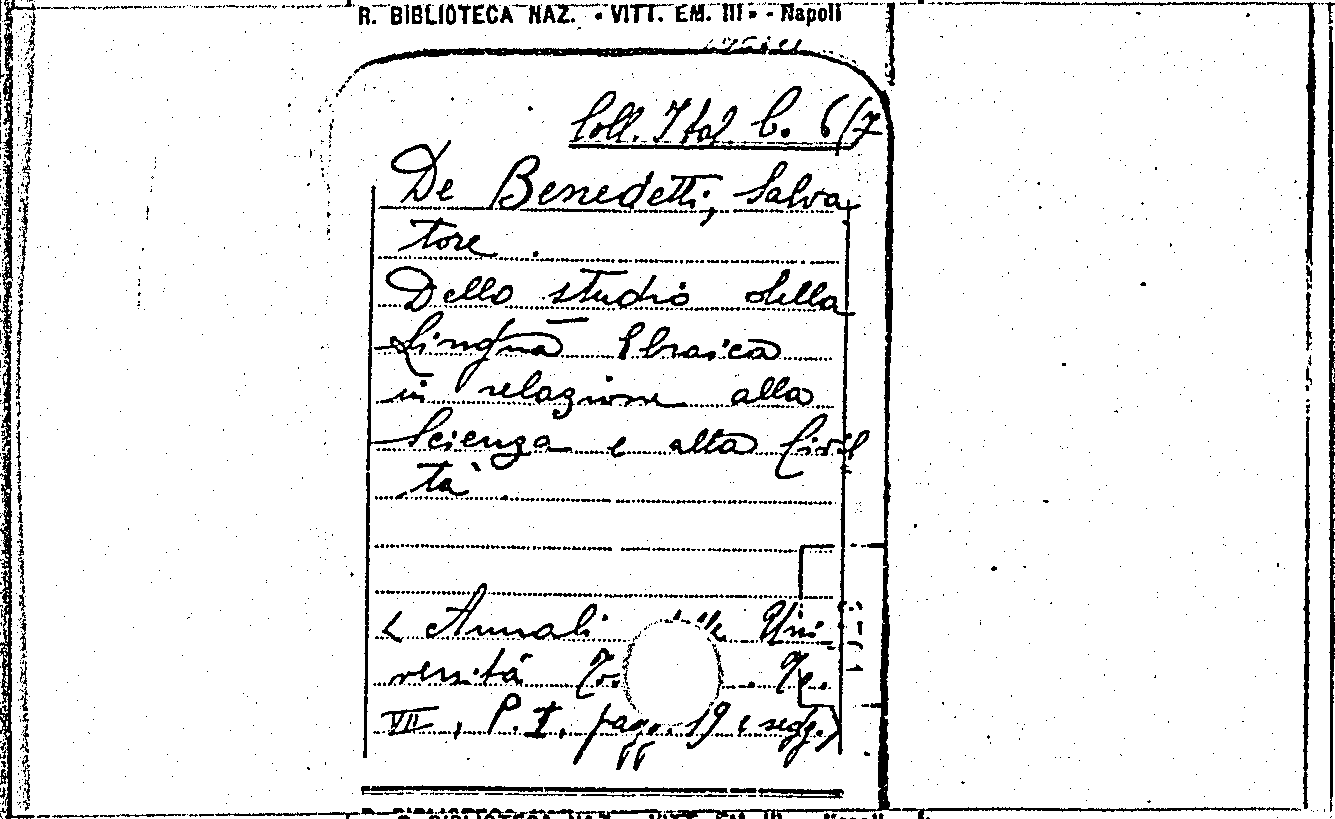 R. BIBLIOTECA NAZ. - VITT. EM. III - - Napoli
Coll. Ital b. 6/7
De Benedetti, Salva
tore.
Dello studio della
Lingua Ebraica
in relazione alla
Scienza e alta Civil
tà.
< Annali delle Uni-
versità
VII, P. I, pag. 19 e segg.)